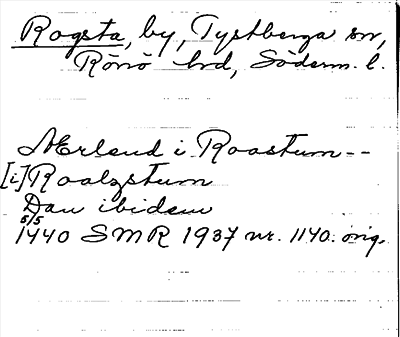 Rogsta, by, Tystberga sn,
Rönö hd, Söderm. l.
Ærlend i Roastum--
[i] Roalzstum
Dan ibidem
5/5
1440 SMR 1937 nr. 1140. orig.